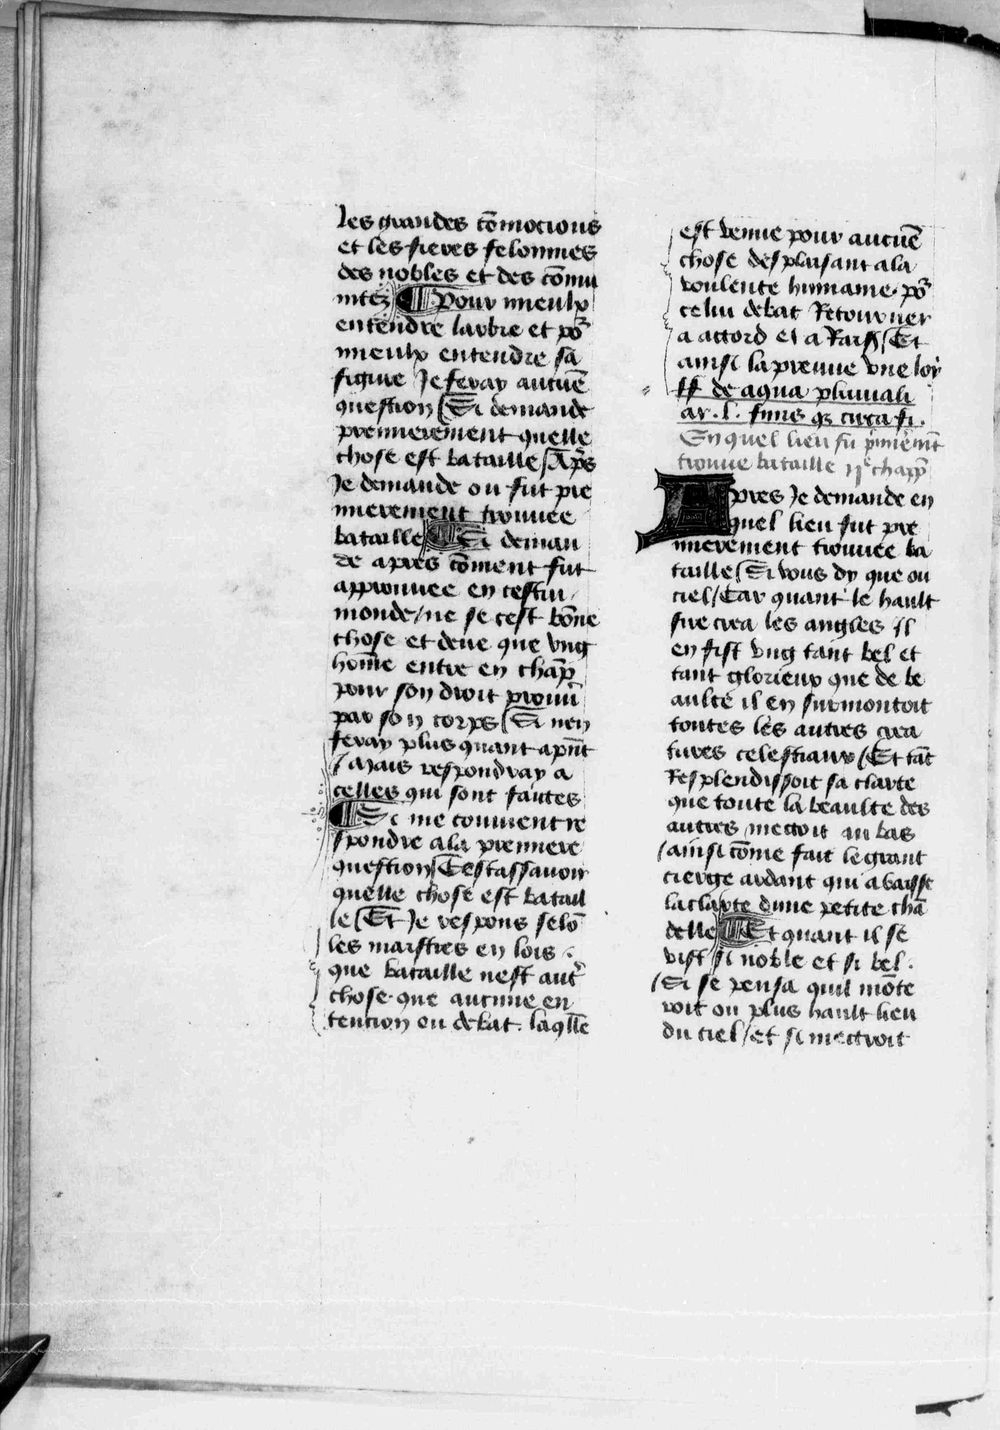 les grandes cōmocions
et les fieres felonnies
des nobles et des cōmu
nitez ¶ Pour mieulx
entendre larbre et po᷑
mieulx entendre sa
figure Je feray aucuē
question / Si demande
premierement quelle
chose est bataille / Ap̄s
Je demande ou fut pre
mierement trouuee
bataille ¶ Si deman
de apres cōment fut
approuuee en cestui
monde / ne se cest bōne
chose et deue que vng
hom̄e entre en chāp
pour son droit prouu᷑
par son corps / Si nen
feray plus quant apn̄t
/ Mais respondray a
celles qui sont faites
¶ Si me conuient re
spondre a la premiere
question / Cestassauoir
quelle chose est batail
le / Et Je respons selō
les maistres en lois .
que bataille nest aut᷑
chose que aucune en
tencion ou debat . laq̄lle
est venue pour aucuē
chose desplaisant a la
voulente humaine . po᷑
celui debat Retourner
a accord et a Raisō / Et
ainsi la preuue vne loy
ff de aqua pluuiali
ar . l . finis qz circa fi .
En quel lieu fu p̄mierem̄t
trouue bataille ij᷑ chapp̄
Apres Je demande en
quel lieu fut pre
mierement trouuee ba
taille / Si vous dy que ou
ciel / Car quant le hault
sire crea les angles Il
en fist vng tant bel et
tant glorieux que de be
aulte il en surmontoit
toutes les autres crea
tures celestiaux / Et tāt
Resplendissoit sa clarte
que toute la beaulte des
autres mectoit au bas
/ ainsi cōme fait le grant
cierge ardant qui abaisse
la clarte dune petite chā
delle ¶ Et quant il se
vist si noble et si bel .
/ Si se pensa quil mōte
roit ou plus hault lieu
du ciel / et si mectroit